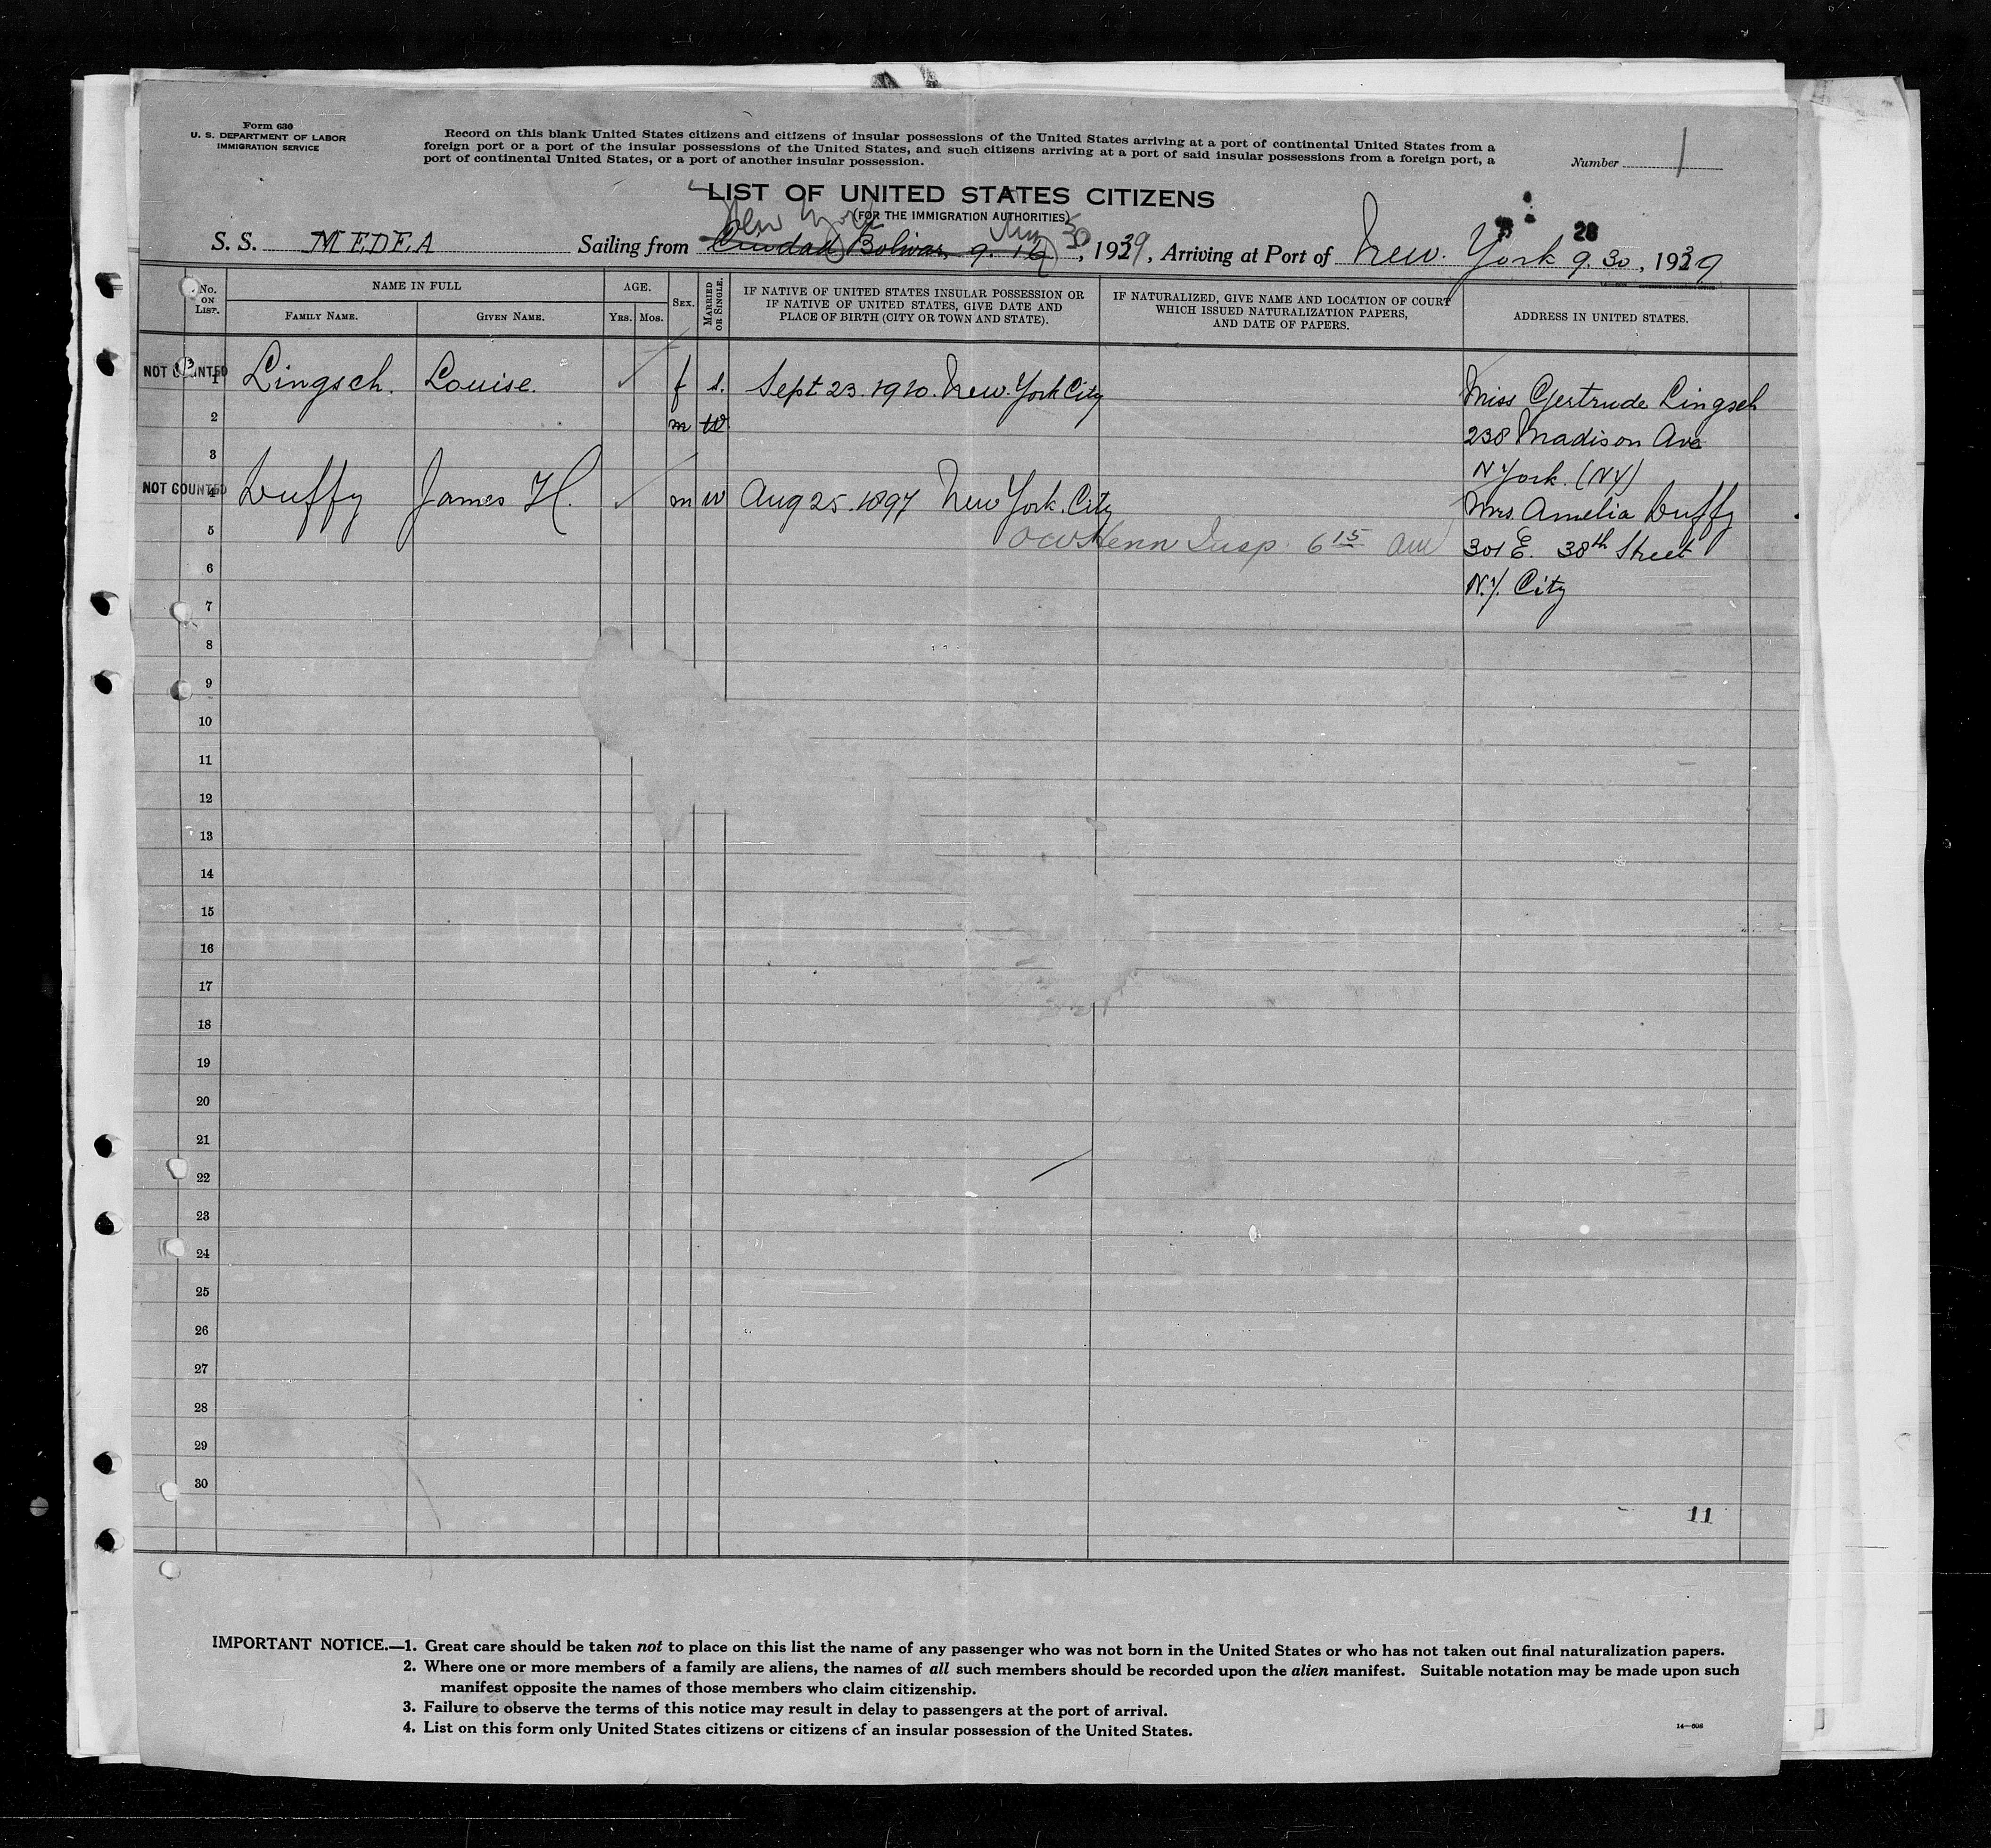 Form 630
U. S. DEPARTMENT OF LABOR
IMMIGRATION SERVICE
Record on this blank United States citizens and citizens of insular possessions of the United States arriving at a port of continental United States from a
foreign port or a port of the insular possessions of the United States, and such citizens arriving at a port of said insular possessions from a foreign port, a
port of continental United States, or a port of another insular possession.
Number 1
LIST OF UNITED STATES CITIZENS
(FOR THE IMMIGRATION AUTHORITIES)
New York
28
S. S. MEDEA Sailing from Ciudad Bolivar 9. 16, 1929, Arriving at Port of New. York 9. 30, 1929
No. on List.
NAME IN FULL
FAMILY NAME.
GIVEN NAME.
AGE.
YRS. MOS.
SEX.
MARRIED OR SINGLE.
IF NATIVE OF UNITED STATES INSULAR POSSESSION OR
IF NATIVE OF UNITED STATES, GIVE DATE AND
PLACE OF BIRTH (CITY OR TOWN AND STATE).
IF NATURALIZED, GIVE NAME AND LOCATION OF COURT
WHICH ISSUED NATURALIZATION PAPERS,
AND DATE OF PAPERS.
ADDRESS IN UNITED STATES.
NOT COUNTED 1 Lingsch. Louise. f s. Sept 23. 1910. New. York City Miss Gertrude Lingsch
2 m w 238 Madison Ave
3 N York. (NY)
NOT COUNTED 4 Duffy James H. m w Aug 25. 1897 New York. City Mrs. Amelia Duffy
5 Insp. 6 15 am 301 E. 38th Street
6 N.Y. City
7
8
9
10
11
12
13
14
15
16
17
18
19
20
21
22
23
24
25
26
27
28
29
30
11
IMPORTANT NOTICE.—1. Great care should be taken not to place on this list the name of any passenger who was not born in the United States or who has not taken out final naturalization papers.
2. Where one or more members of a family are aliens, the names of all such members should be recorded upon the alien manifest. Suitable notation may be made upon such
manifest opposite the names of those members who claim citizenship.
3. Failure to observe the terms of this notice may result in delay to passengers at the port of arrival.
4. List on this form only United States citizens or citizens of an insular possession of the United States.
14—608